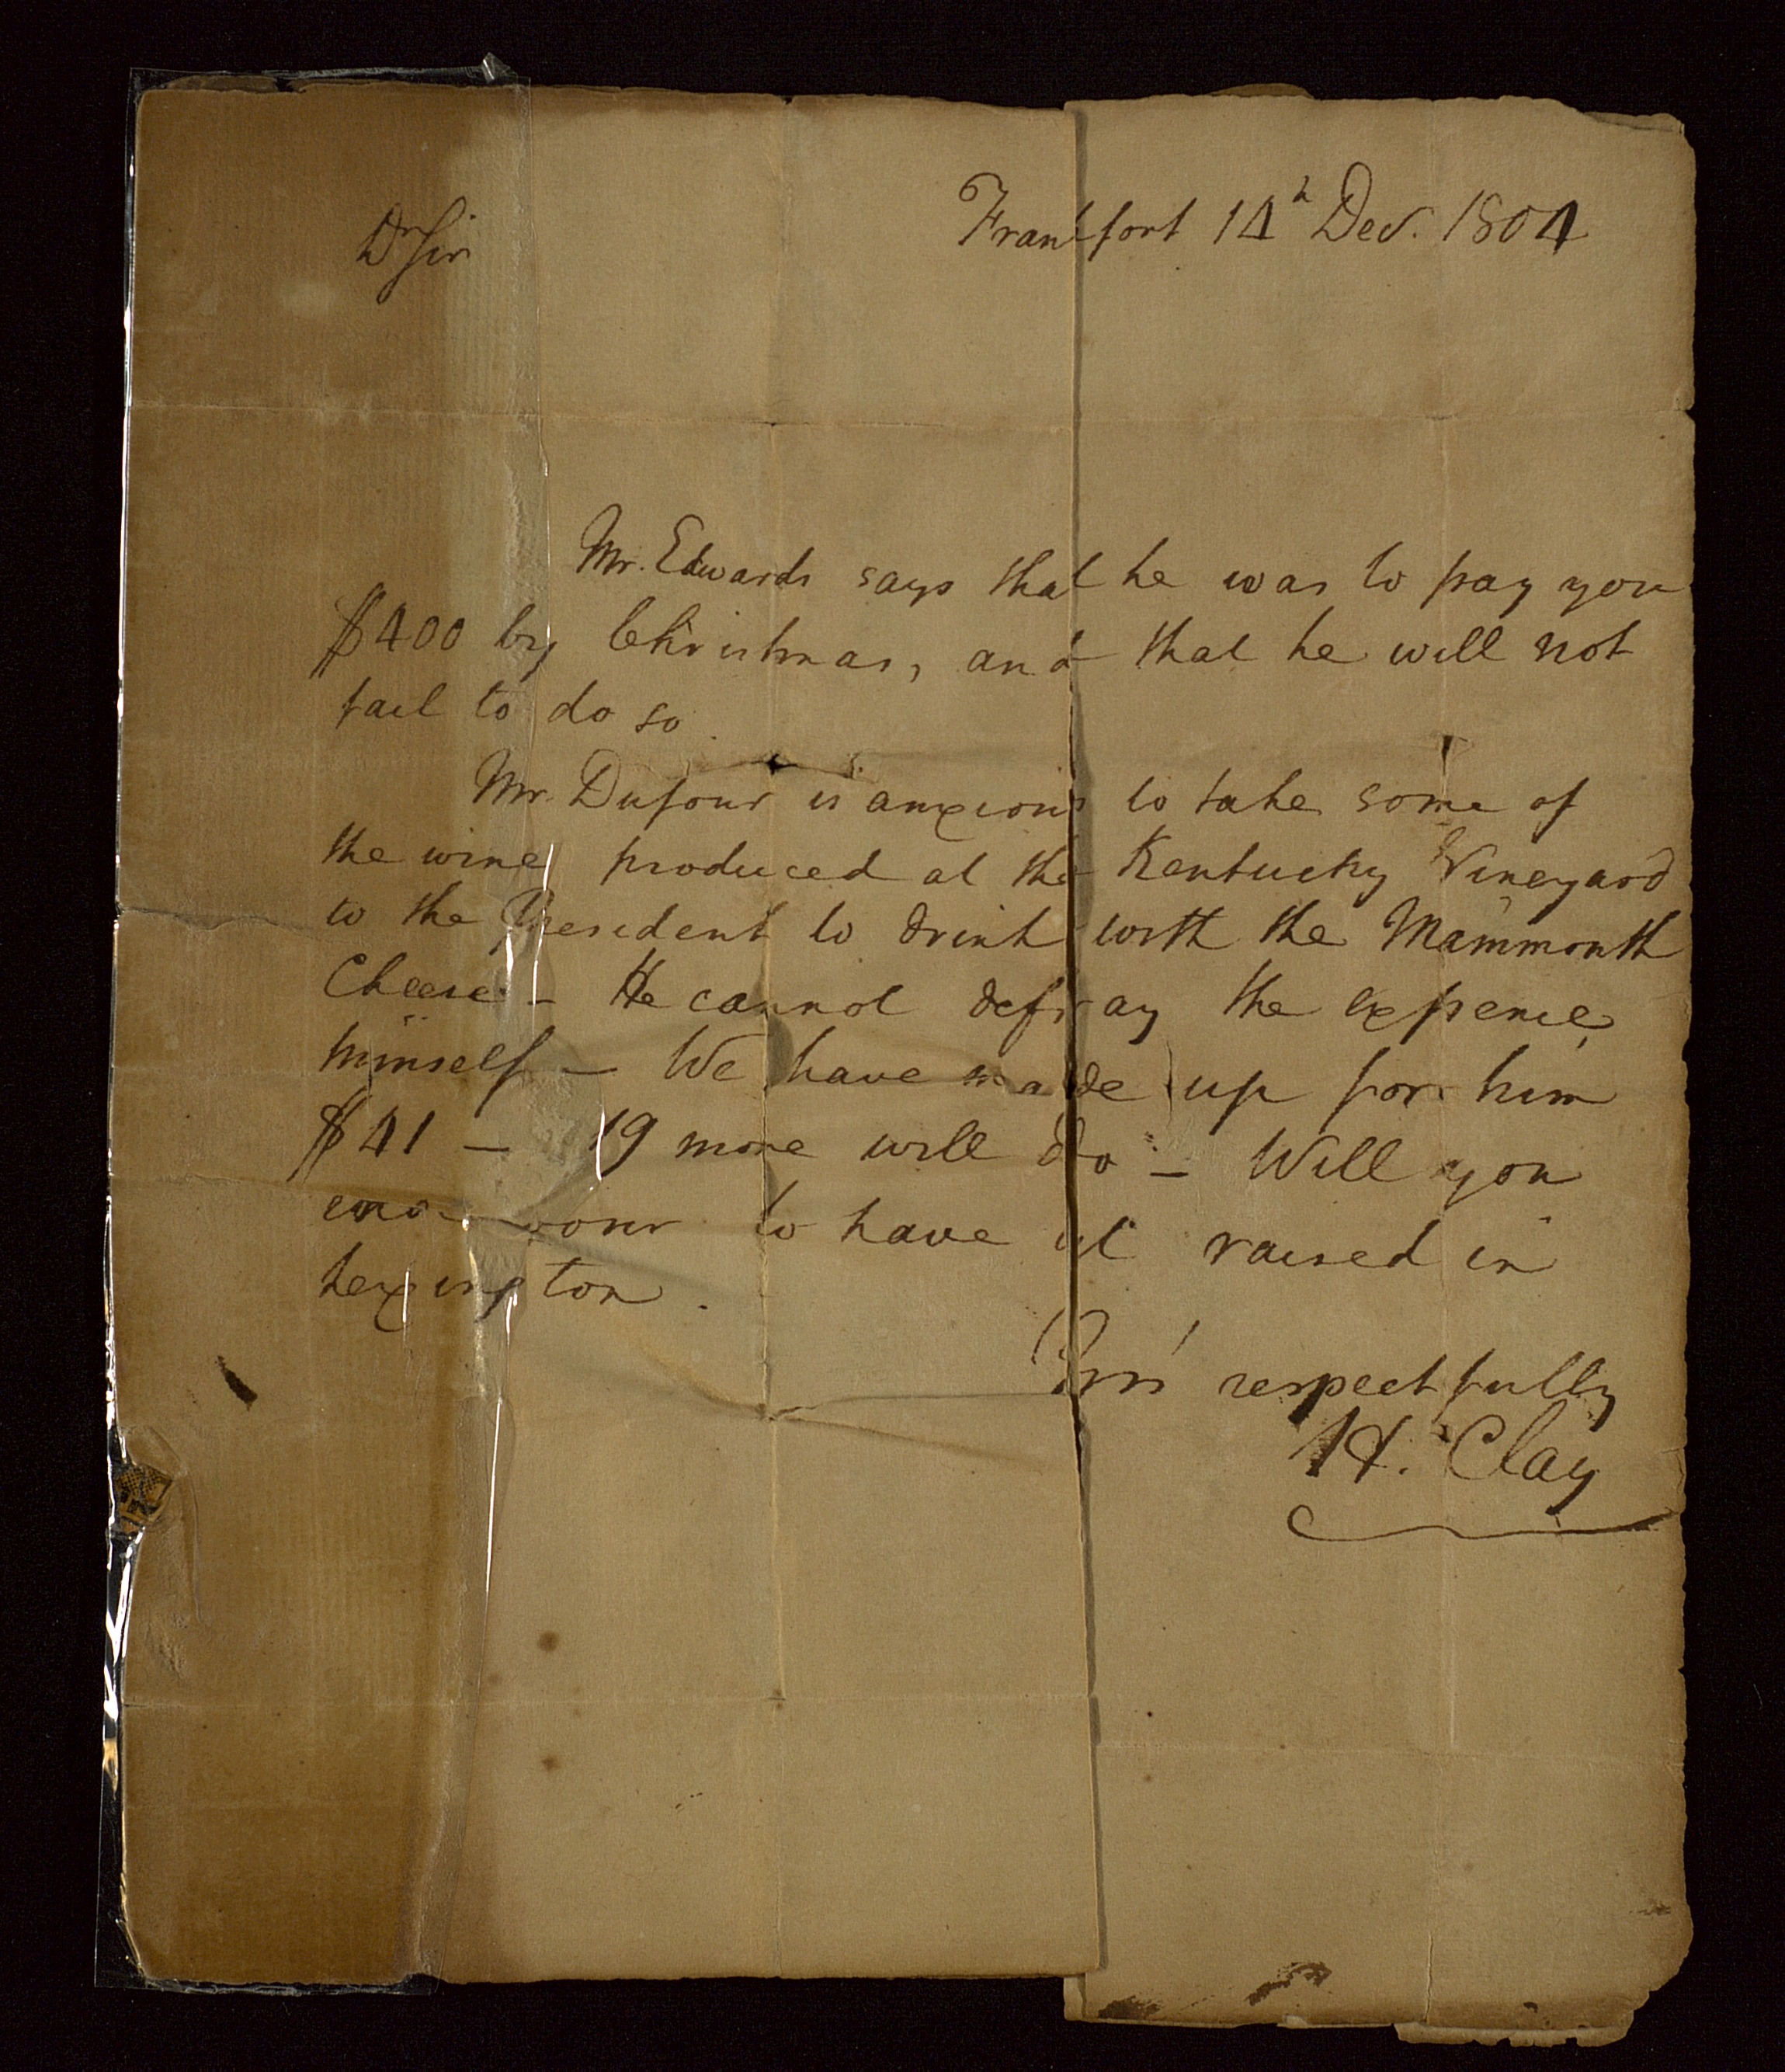 Frankfort 14h Dec. 1804
Dr Sir
Mr. Edwards says that he was to pay you
$400 by Christmas, and that he will not
fail to do so.
Mr. Dufour is anxious to take some of
the wine produced at the Kentucky Vineyard
to the President to drink with the Mammouth
Cheese - He cannot defray the expence
himself - We have made up for him
$41 - 19 more will do - Will you
to have it raised in
Lexington.
Yrs' respectfully
H. Clay